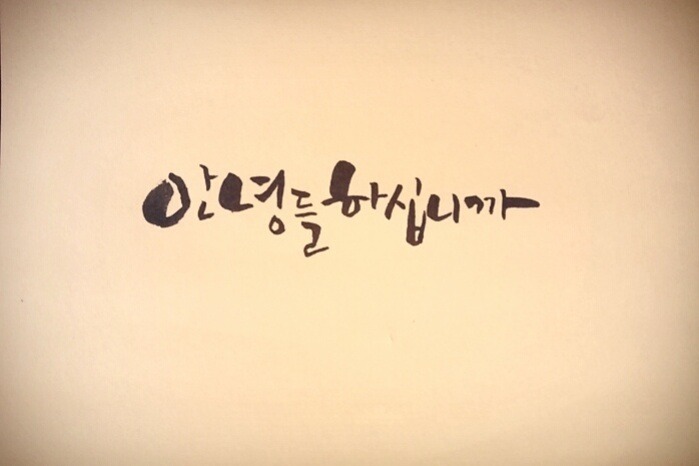 안녕들하십니까